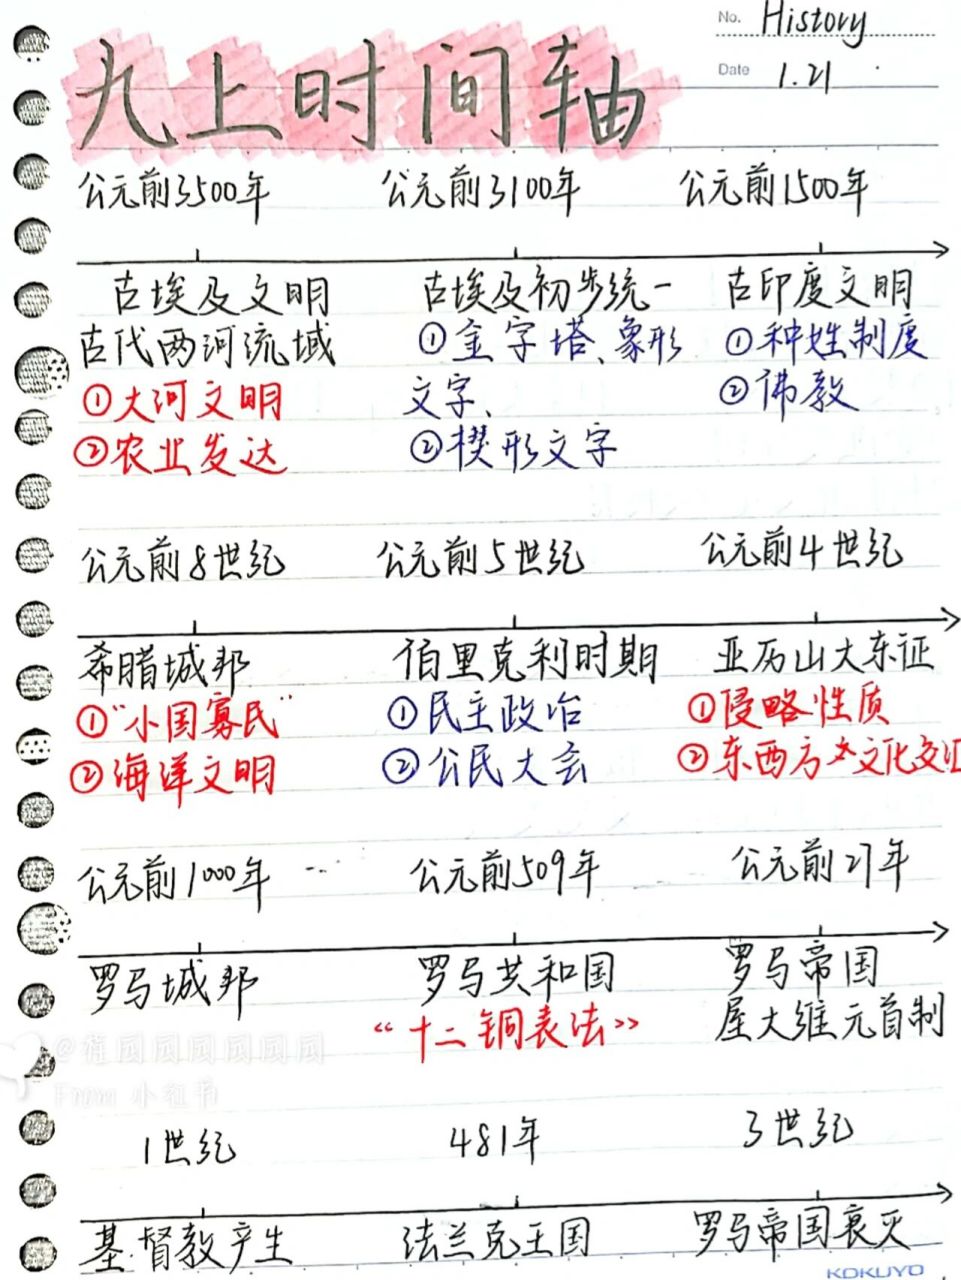 No. History
Date 1.21
九上时间轴
公元前3500年 公元前3100年 公元前1500年
古埃及文明 古埃及初步统一 古印度文明
古代两河流域 ①金字塔、象形 ①种姓制度
①大河文明 文字、 ②佛教
②农业发达 ②楔形文字
公元前8世纪 公元前5世纪 公元前4世纪
希腊城邦 伯里克利时期 亚历山大东征
①"小国寡民" ①民主政治 ①侵略性质
②海洋文明 ②公民大会 ②东西方文化交汇
公元前1000年 公元前509年 公元前27年
罗马城邦 罗马共和国 罗马帝国
“十二铜表法” 屋大维元首制
From 小红书
1世纪 481年 3世纪
基督教产生 法兰克王国 罗马帝国衰灭
KOKUYO